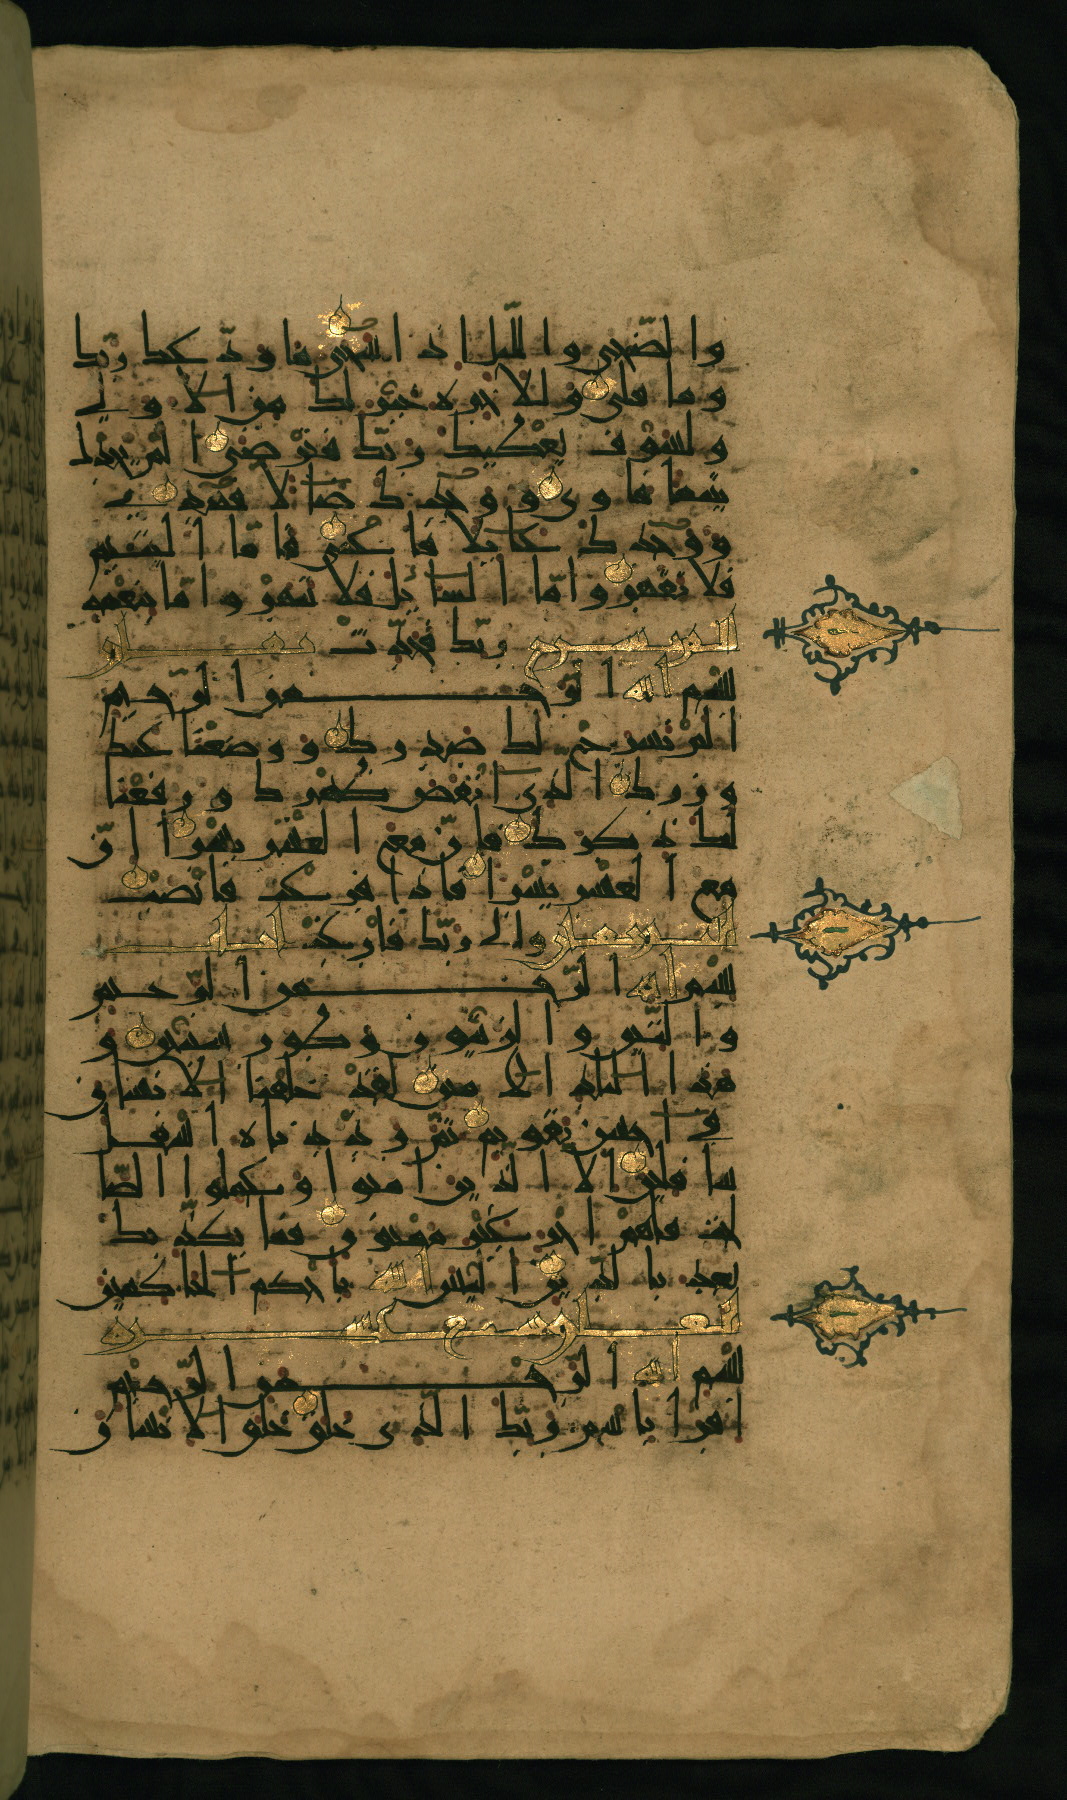 والضحى والليل اذا سجى ما ودعك ربك
وما قلى وللاخرة خير لك من الاولى
ولسوف يعطيك ربك فترضى الم يجدك
يتيما فاوى ووجدك ضالا فهدى
ووجدك عائلا فاغنى فاما اليتيم
فلا تقهر واما السائل فلا تنهر واما بنعمة
ربك فحدث
بسم الله الرحمن الرحيم
الم نشرح لك صدرك ووضعنا عنك
وزرك الذى انقض ظهرك ورفعنا
لك ذكرك فان مع العسر يسرا ان
مع العسر يسرا فاذا فرغت فانصب
والى ربك فارغب
بسم الله الرحمن الرحيم
والتين والزيتون وطور سينين و
هذا البلد الامين لقد خلقنا الانسان
فى احسن تقويم ثم رددناه اسفل
سافلين الا الذين امنوا وعملوا الصا
لحت فلهم اجر غير ممنون فما يكذبك
بعد بالدين اليس الله باحكم الحاكمين
بسم الله الرحمن الرحيم
اقرا باسم ربك الذى خلق خلق الانسان